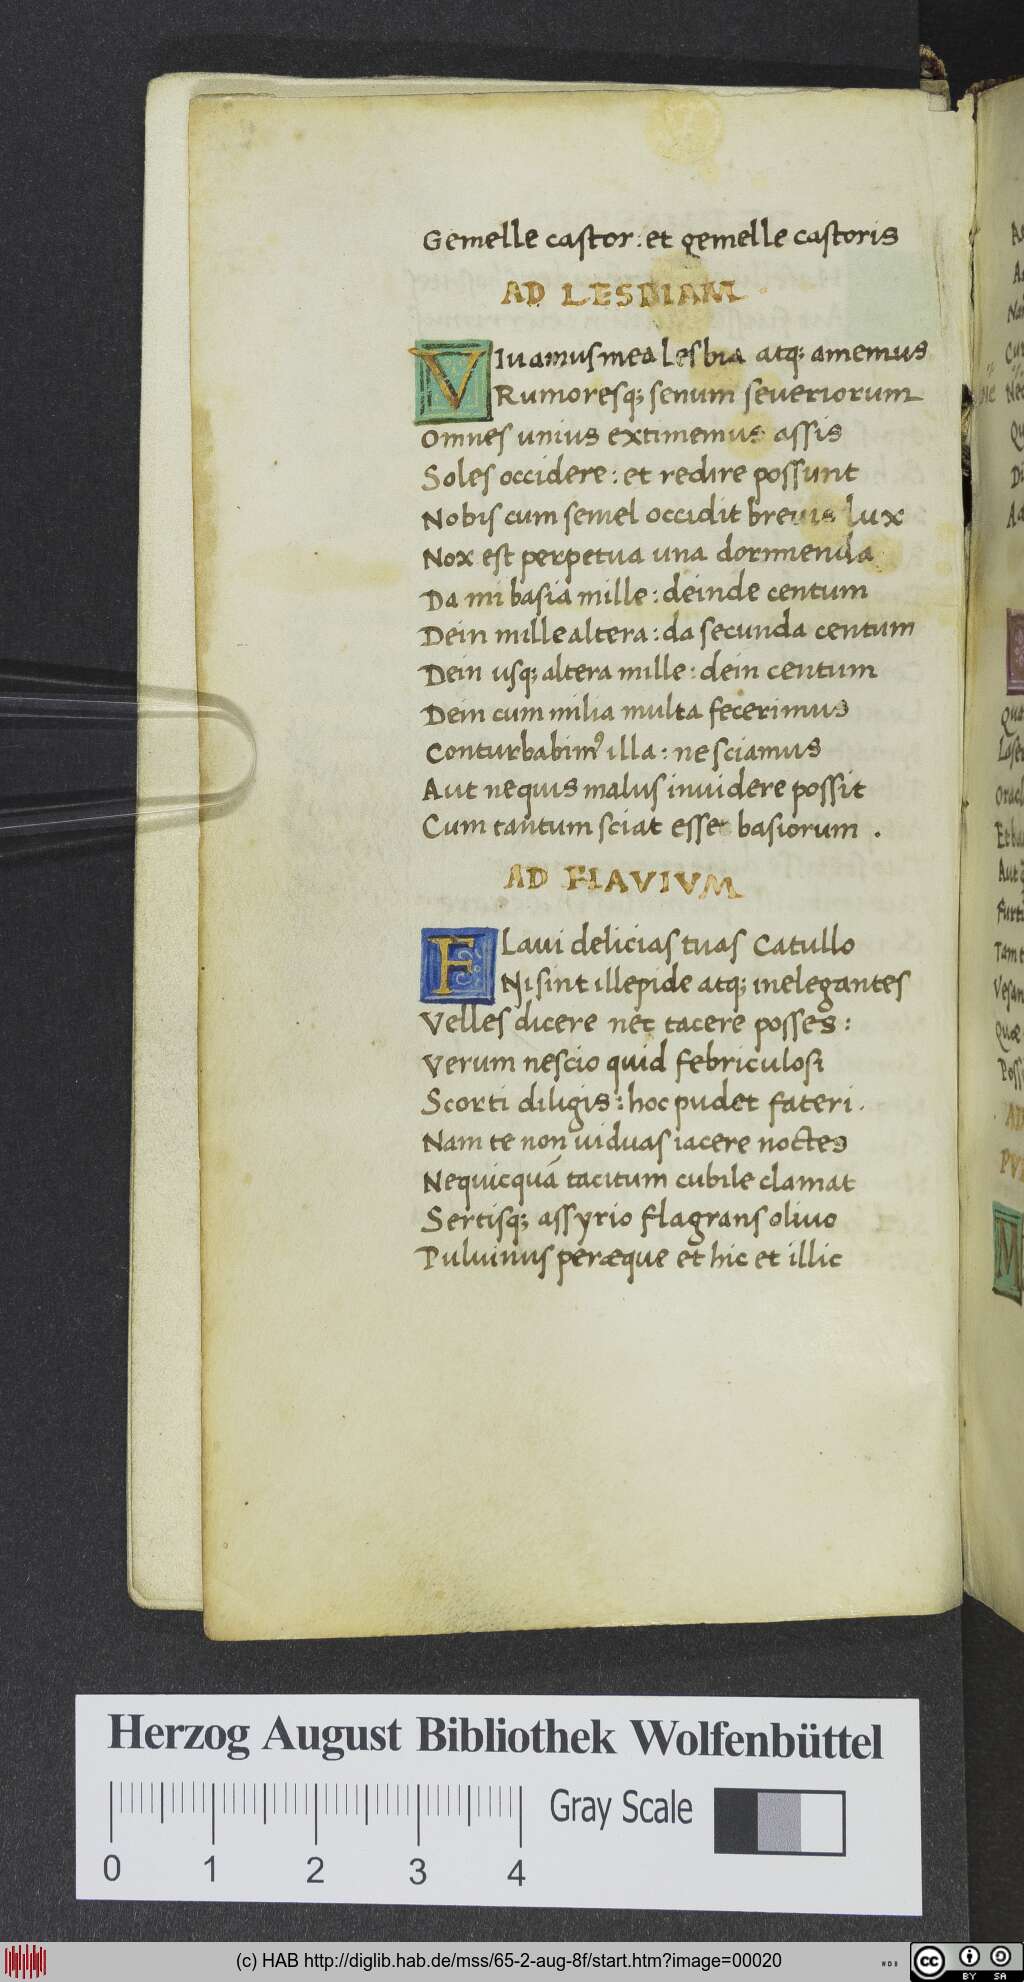 Gemelle castor: et gemelle castoris
AD LESBIAM
VIuamus mea lesbia atq; amemus
Rumoresq; senum seueriorum
Omnes unius extimemus assis
Soles occidere: et redire possunt
Nobis cum semel occidit breuis lux
Nox est perpetua una dormienda
Da mi basia mille: deinde centum
Dein mille altera: da secunda centum
Dein usq; altera mille: dein centum
Dein cum milia multa fecerimus
Conturbabimꝰ illa: ne sciamus
Aut ne quis malus inuidere possit
Cum tantum sciat esse basiorum .
AD FLAVIVM
FLaui delicias tuas Catullo
Ni sint illepide atq; inelegantes
Velles dicere nec tacere posses:
Verum nescio quid febriculosi
Scorti diligis: hoc pudet fateri.
Nam te non uiduas iacere noctes
Nequicquã tacitum cubile clamat
Sertisq; assyrio flagrans oliuo
Puluinus peræque et hic et illic
Herzog August Bibliothek Wolfenbüttel
Gray Scale
0 1 2 3 4
(c) HAB http://diglib.hab.de/mss/65-2-aug-8f/start.htm?image=00020
cc BY SA